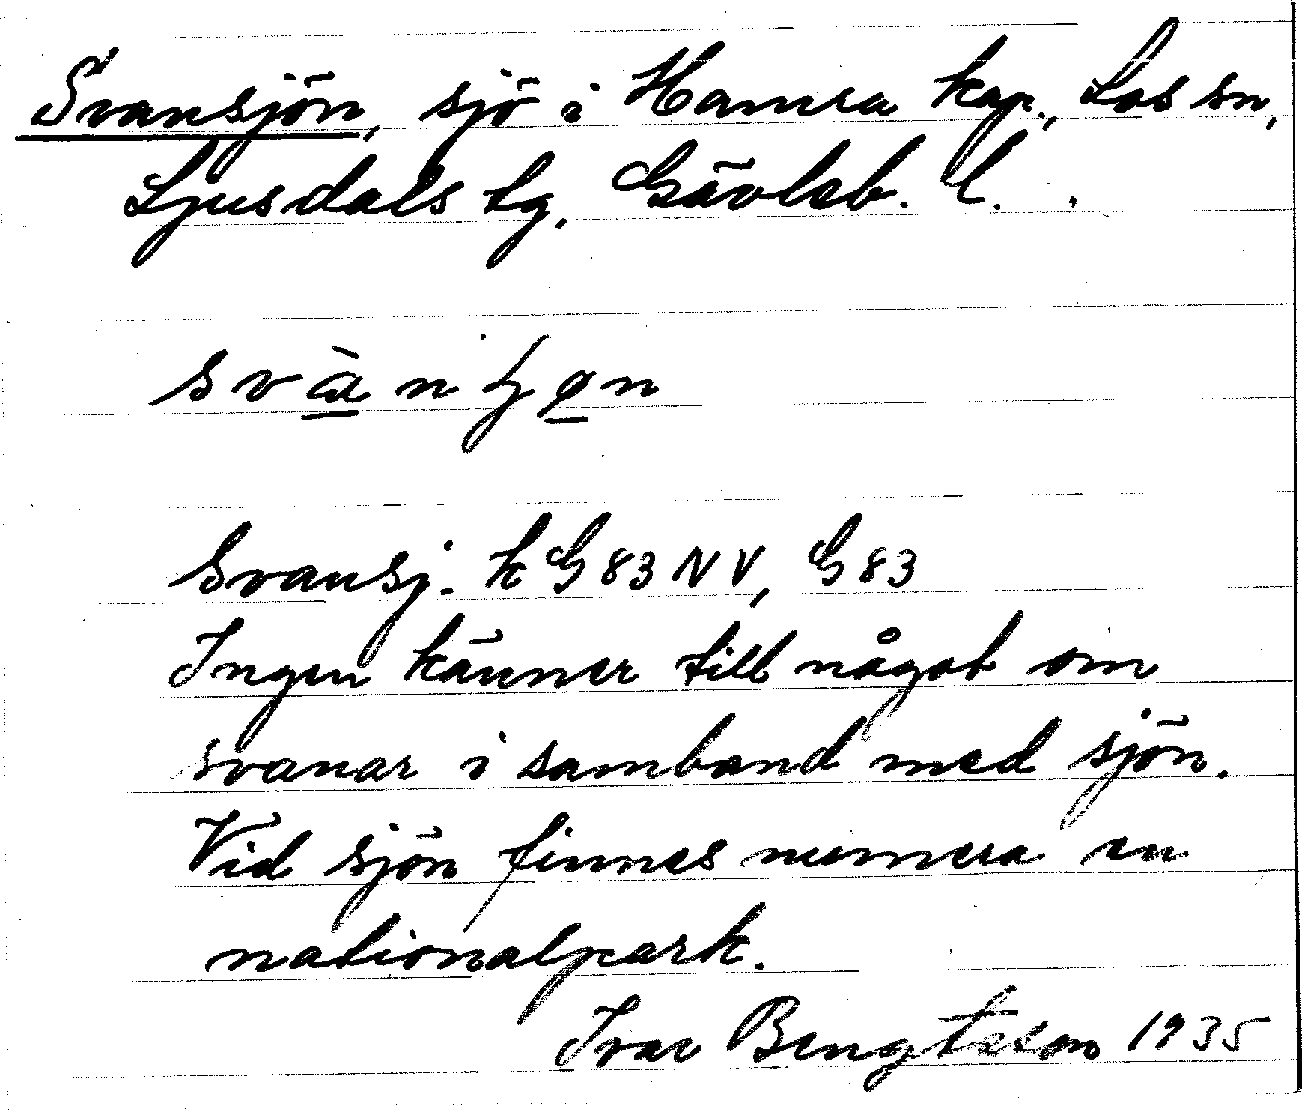 Svansjön, sjö i Hamra kap., Los sn,
Ljusdals tg, Gävleb. l.
svànʃøn
Svansj. k G83NV, G83
Ingen känner till något om
svanar i samband med sjön.
Vid sjön finnes numera en
nationalpark.
Ivar Bengtsson 1935